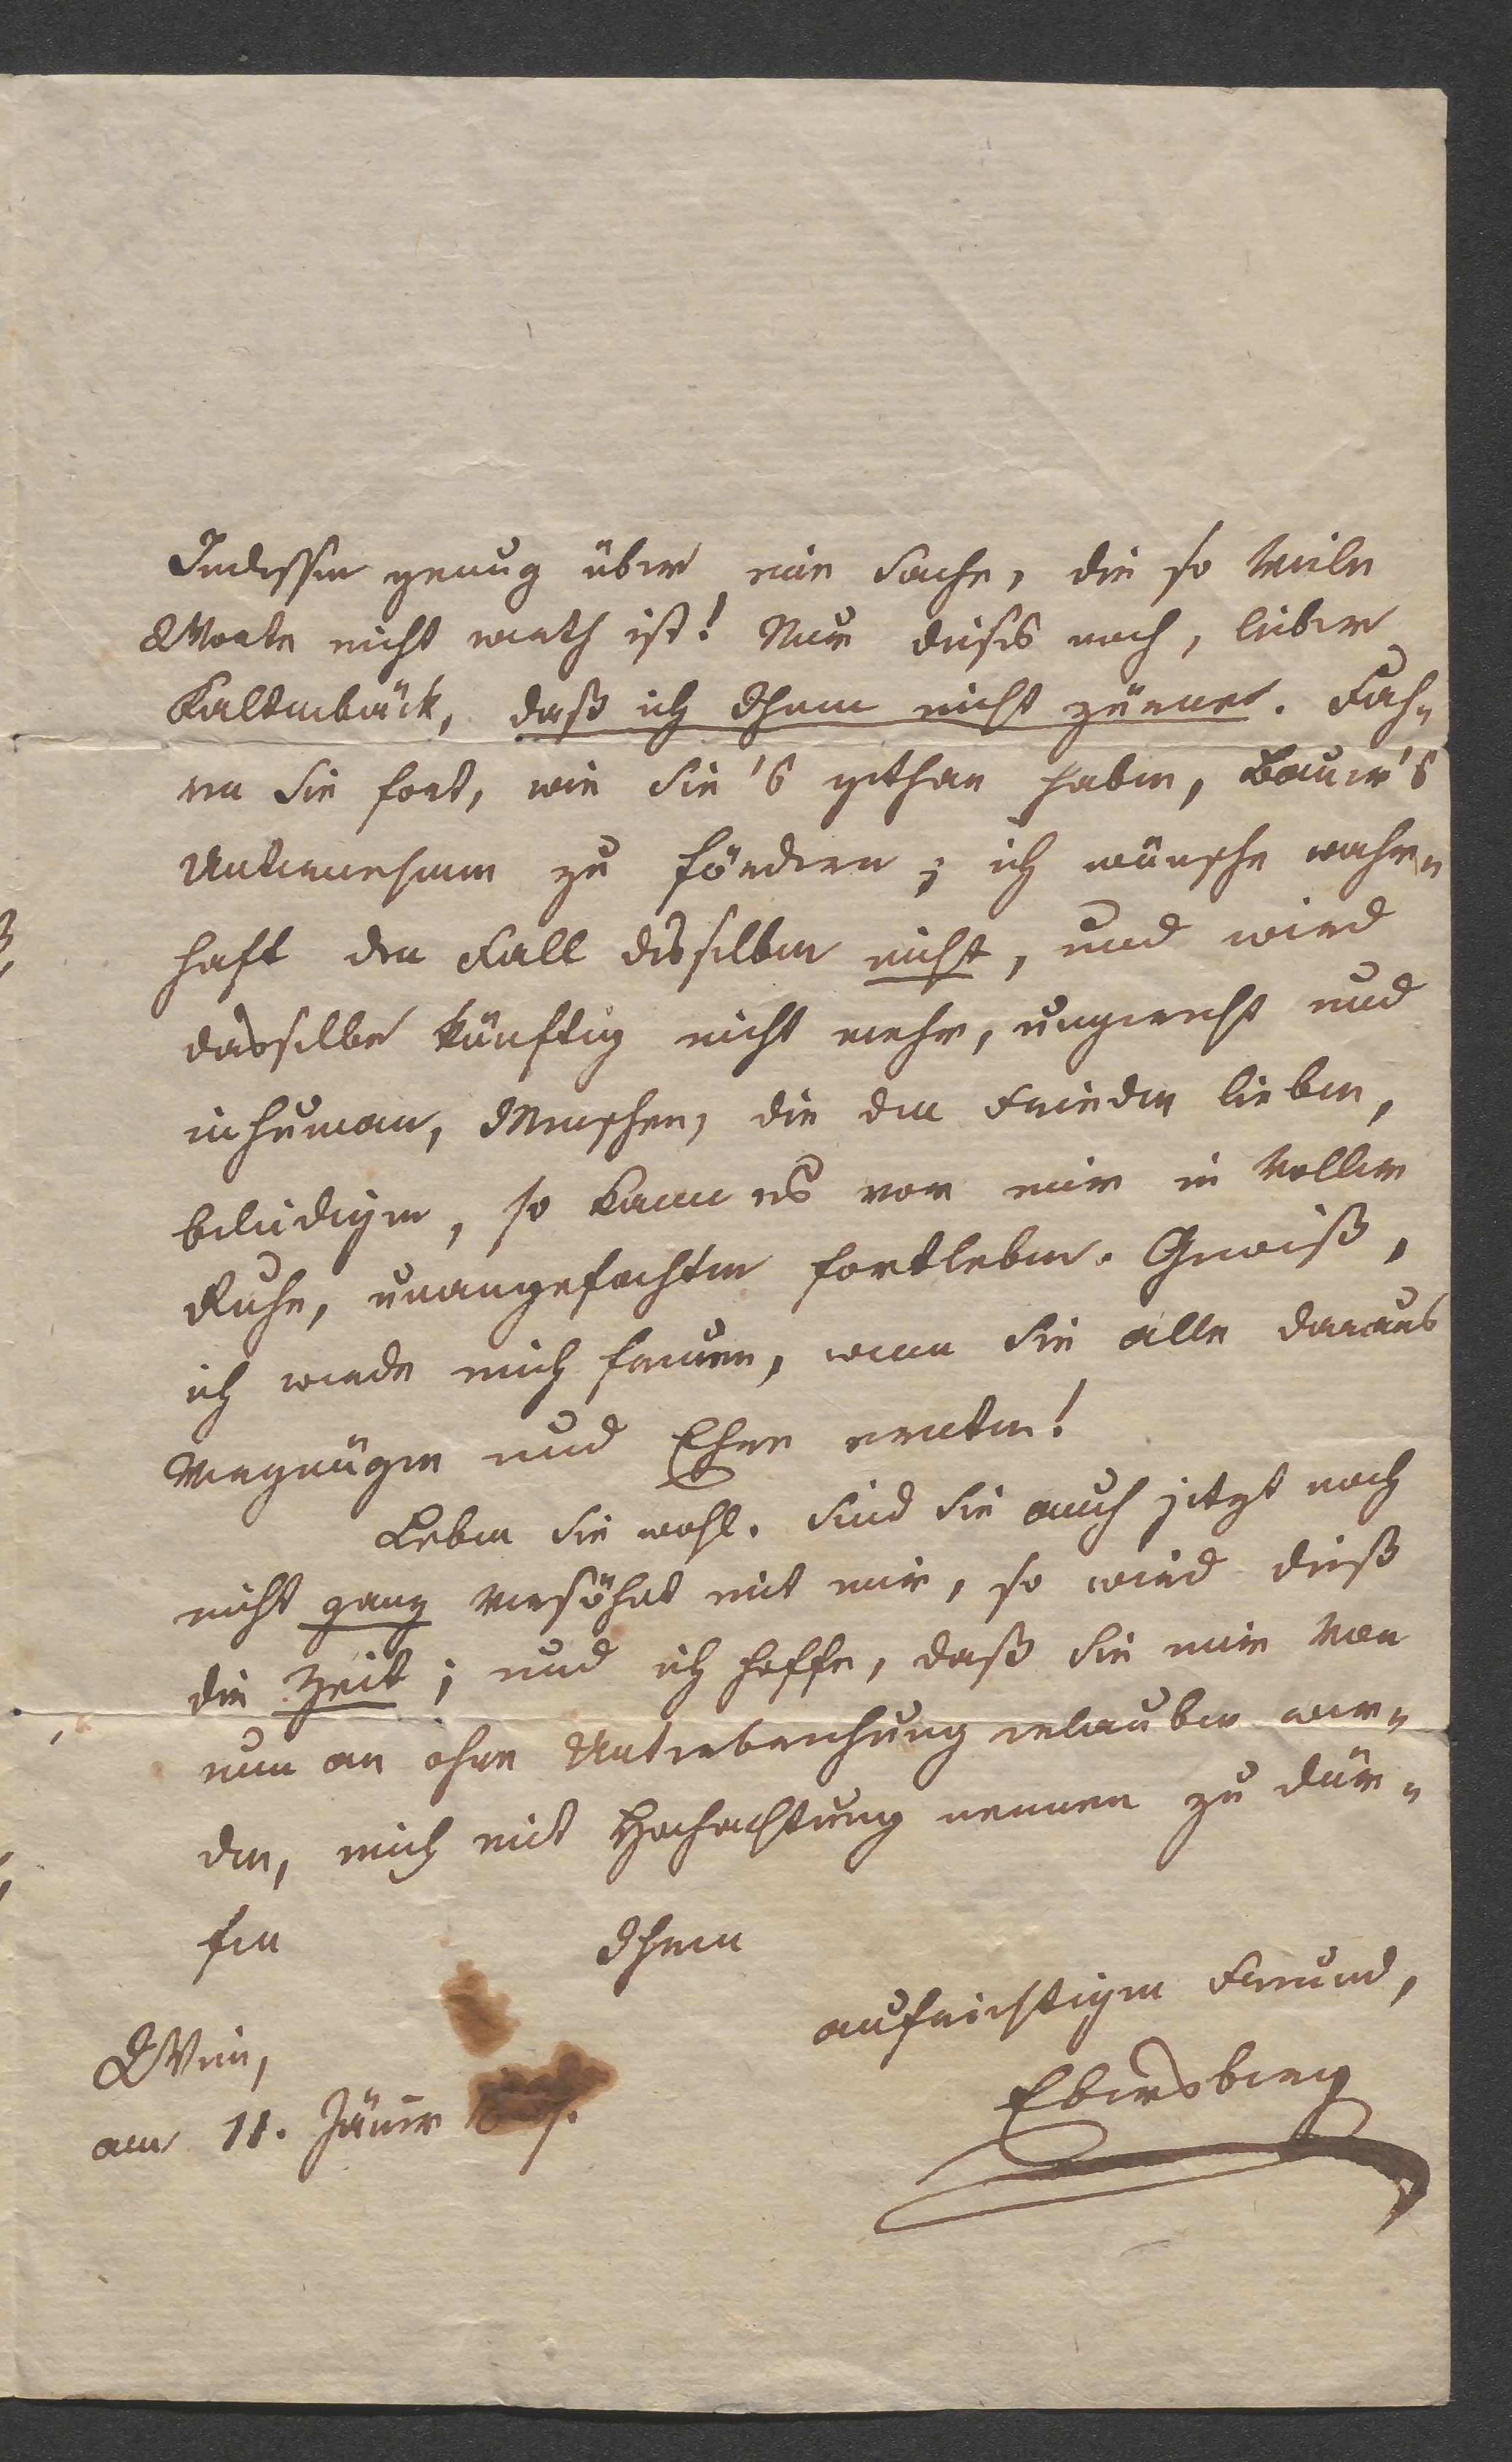 Indessen genug über eine Sache, die so viele
Worte nicht werth ist! Nur dieses noch, lieber
Kaltenbäck, daß ich Ihnen nicht zürne. Fah-
ren Sie fort, wie Sie's gethan haben, Bäuerle's
Unternehmen zu fördern; ich wünsche wahr-
haft den Fall desselben nicht, und wird
dasselbe künftig nicht mehr, ungerecht und
inhuman, Menschen, die den Frieden lieben,
beleidigen, so kann es vor mir in voller
Ruhe, unangefochten fortleben. Gewiß,
ich werde mich freuen, wenn Sie alle daraus
Vergnügen und Ehre ernten!
Leben Sie wohl. Sind Sie auch jetzt noch
nicht ganz versöhnt mit mir, so wird dieß
die Zeit; und ich hoffe, daß Sie mir von
nun an ohne Unterbrechung erlauben wer-
den, mich mit Hochachtung nennen zu dür-
fen Ihren
aufrichtigen Freund,
Ebersberg
Wien,
am 11. Jäner